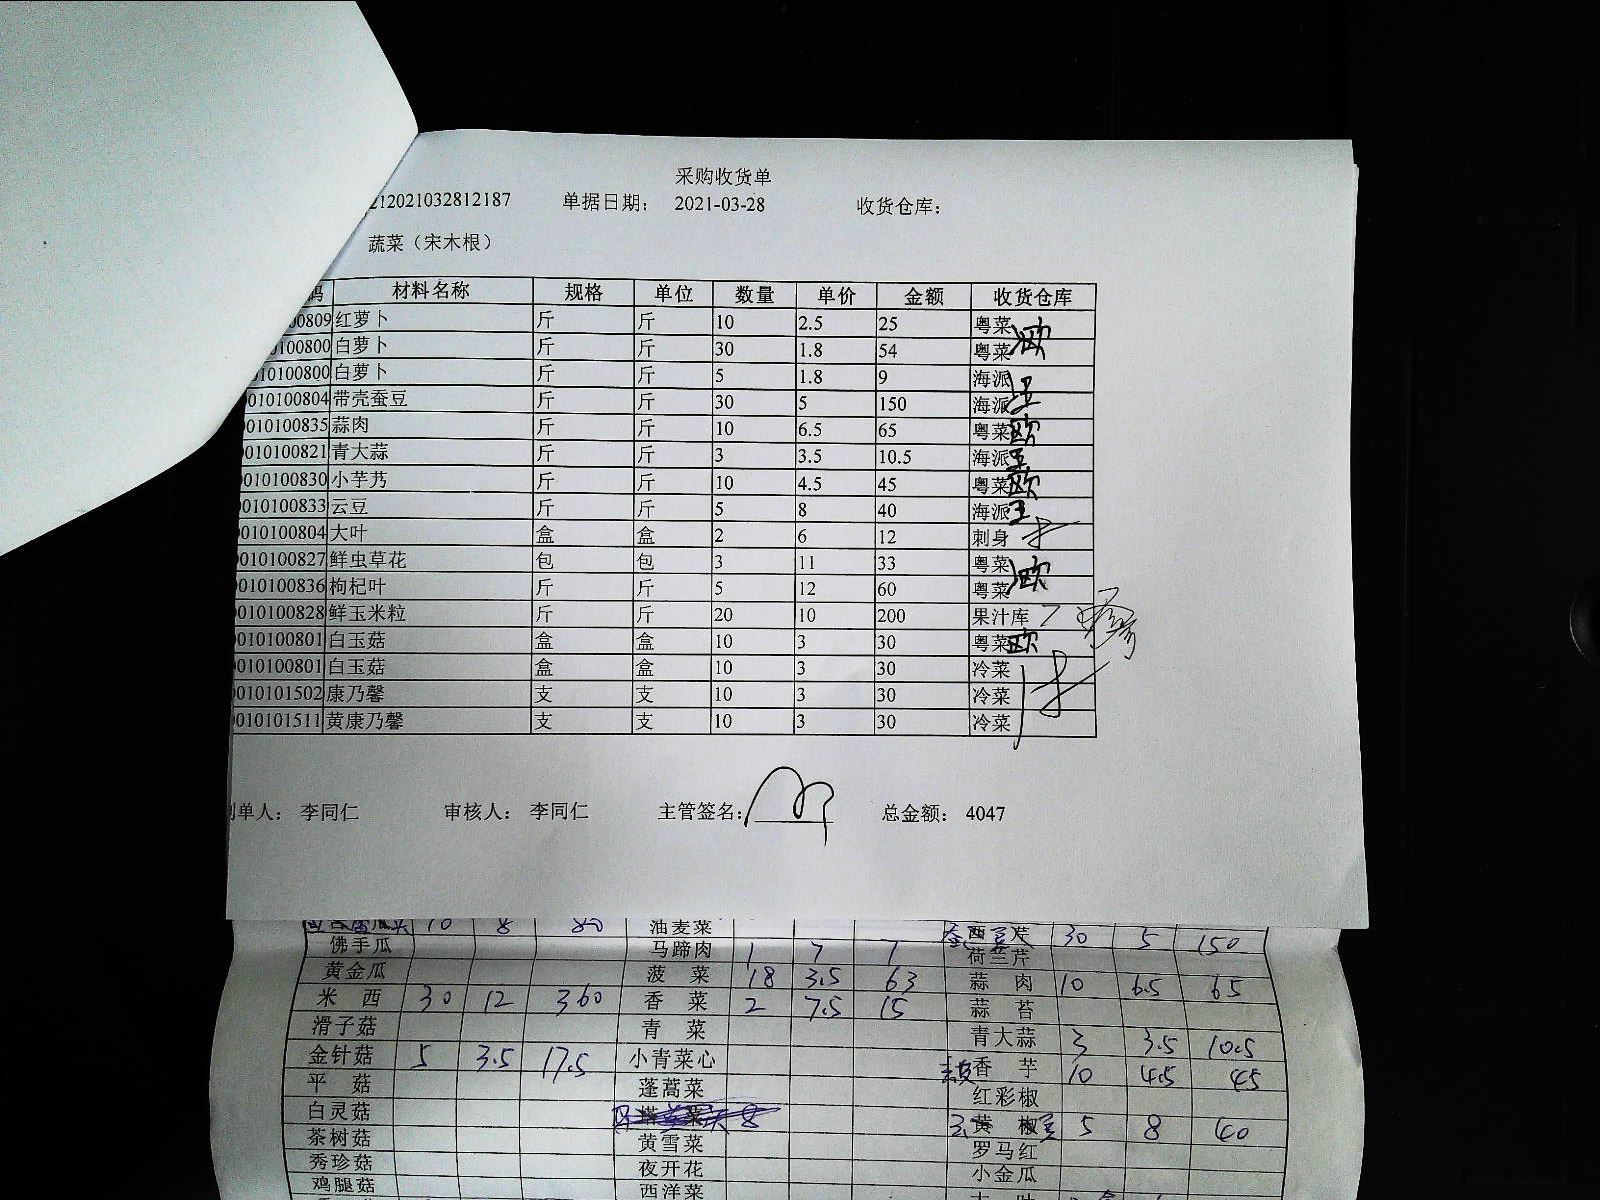 采购收货单
212021032812187 单据日期： 2021-03-28 收货仓库：
蔬菜（宋木根）
码 材料名称 规格 单位 数量 单价 金额 收货仓库
00809 红萝卜 斤 斤 10 2.5 25 粤菜
0100800 白萝卜 斤 斤 30 1.8 54 粤菜 欧
010100800 白萝卜 斤 斤 5 1.8 9 海派
0010100804 带壳蚕豆 斤 斤 30 5 150 海派 王
0010100835 蒜肉 斤 斤 10 6.5 65 粤菜 欧
0010100821 青大蒜 斤 斤 3 3.5 10.5 海派 王
0010100830 小芋艿 斤 斤 10 4.5 45 粤菜 欧
0010100833 云豆 斤 斤 5 8 40 海派 王
0010100804 大叶 盒 盒 2 6 12 刺身
0010100827 鲜虫草花 包 包 3 11 33 粤菜 欧
0010100836 枸杞叶 斤 斤 5 12 60 粤菜
0010100828 鲜玉米粒 斤 斤 20 10 200 果汁库
0010100801 白玉菇 盒 盒 10 3 30 粤菜 欧
0010100801 白玉菇 盒 盒 10 3 30 冷菜
0010101502 康乃馨 支 支 10 3 30 冷菜
0010101511 黄康乃馨 支 支 10 3 30 冷菜
制单人： 李同仁 审核人： 李同仁 主管签名： 总金额： 4047
10 8 80 油麦菜 30 5 150
佛手瓜 马蹄肉 1 7 7 荷兰芹
黄金瓜 菠菜 18 3.5 63 蒜肉 10 6.5 65
米西 30 12 360 香菜 2 7.5 15 蒜苔
滑子菇 青菜 青大蒜 3 3.5 10.5
金针菇 5 3.5 17.5 小青菜心 香芋 10 4.5 45
平菇 蓬蒿菜 红彩椒
白灵菇 塔菜 8 黄椒 5 8 40
茶树菇 黄雪菜 罗马红
秀珍菇 夜开花 小金瓜
鸡腿菇 西洋菜